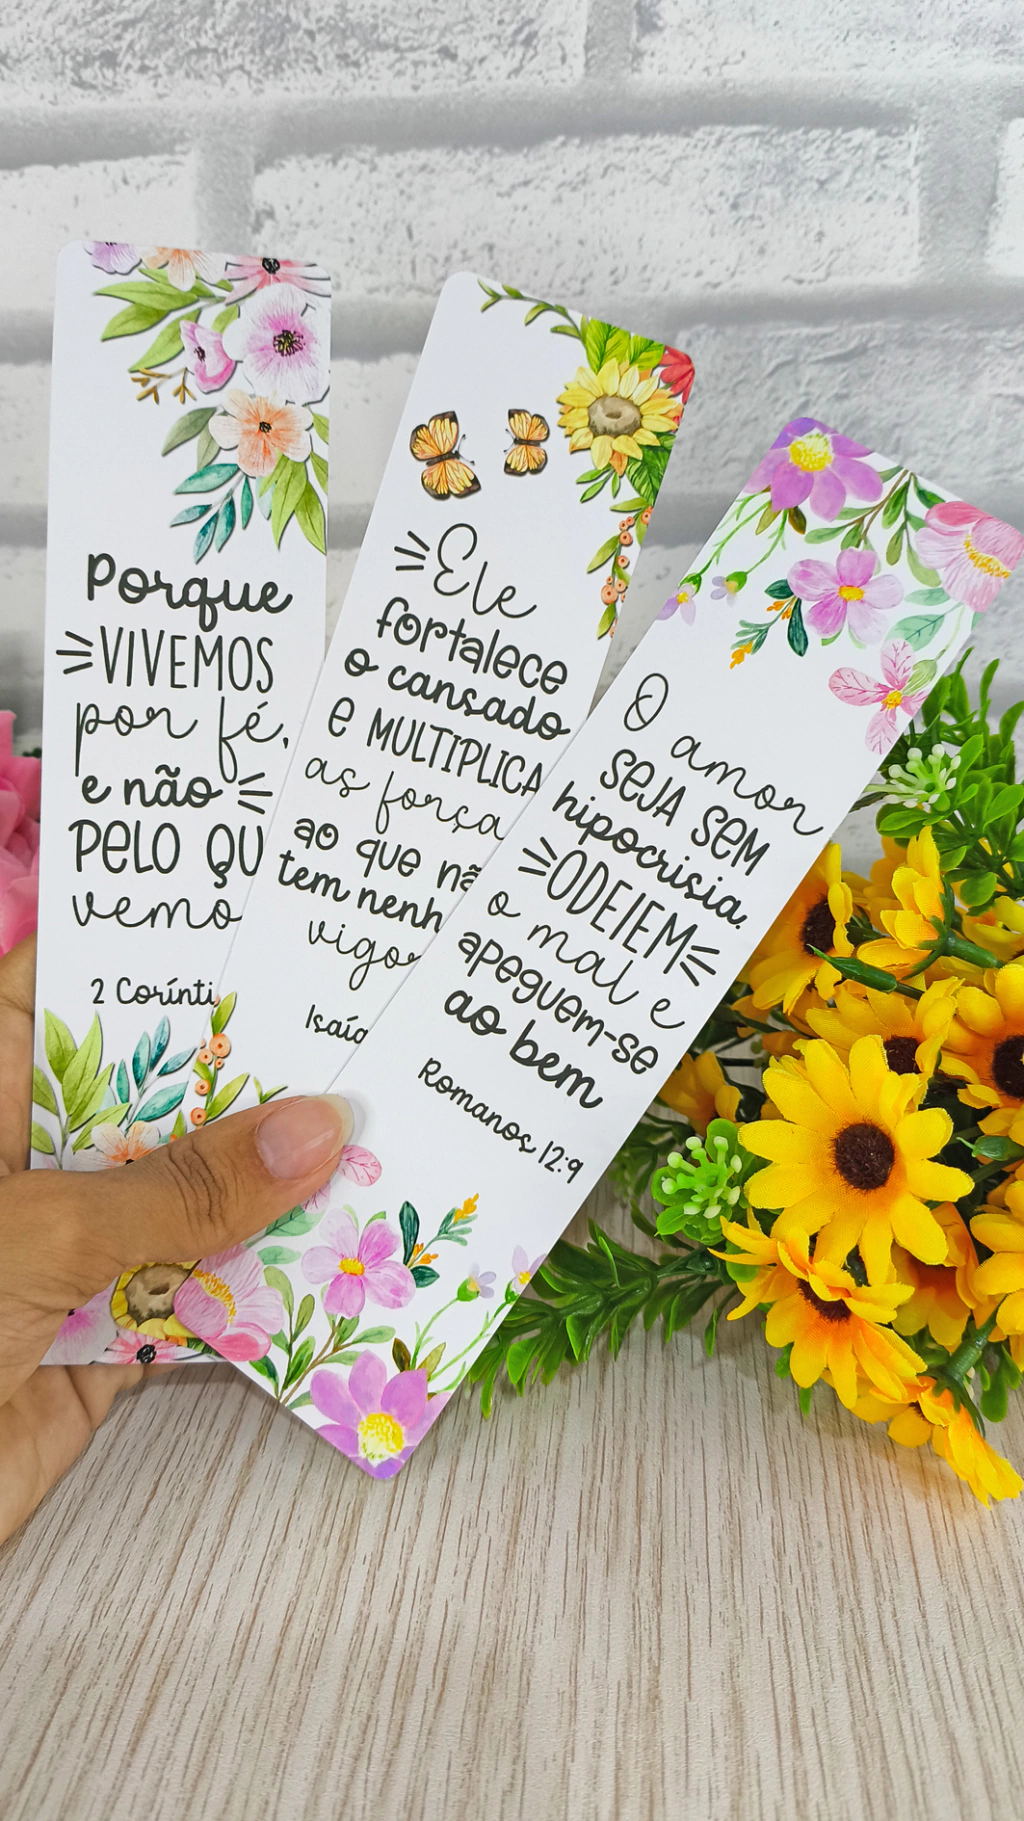 Porque
VIVEMOS
por fé,
e não
PELO QU
vemo
2 Corínti
Ele
fortalece
o cansado
e MULTIPLICA
as força
ao que nã
tem nenh
vigor
Isaía
O amor
seja sem
hipocrisia.
ODEIEM
o mal e
apeguem-se
ao bem
Romanos 12:9